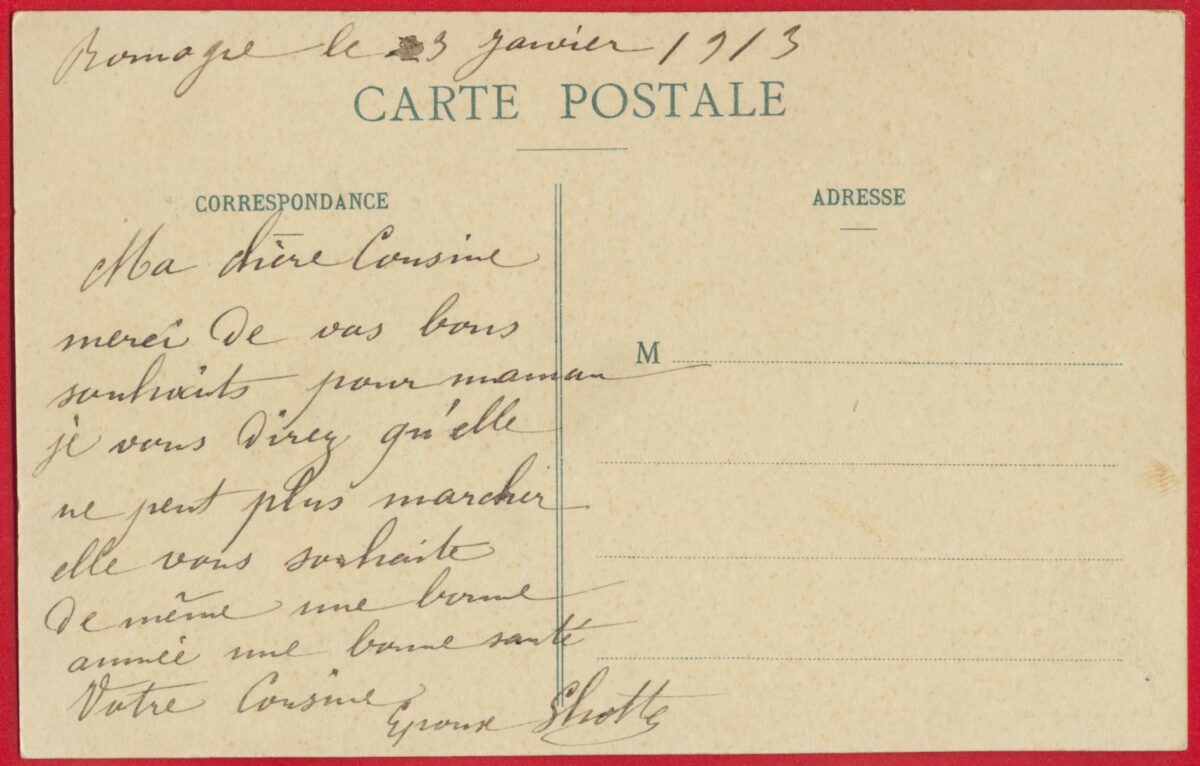 Romagne le 3 janvier 1913
CARTE POSTALE
CORRESPONDANCE
ADRESSE
Ma chère Cousine
merci de vos bons
souhaits pour maman
je vous direz qu'elle
ne peut plus marcher
elle vous souhaite
de même une bonne
année une bonne santé
Votre Cousine
Epoux
M